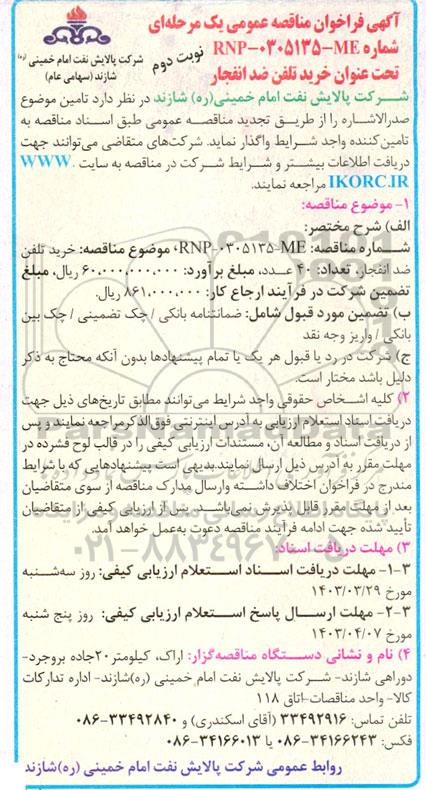 آگهی فراخوان مناقصه عمومی یک مرحله‌ای
شماره RNP-۰۳۰۵۱۳۵-ME
نوبت دوم
تحت عنوان خرید تلفن ضد انفجار
شرکت پالایش نفت امام خمینی (ره)
شازند (سهامی عام)
شرکت پالایش نفت امام خمینی(ره) شازند در نظر دارد تامین موضوع
صدرالاشاره را از طریق تجدید مناقصه عمومی طبق اسناد مناقصه به
تامین‌کننده واجد شرایط واگذار نماید. شرکت‌های متقاضی می‌توانند جهت
دریافت اطلاعات بیشتر و شرایط شرکت در مناقصه به سایت WWW.
IKORC.IR مراجعه نمایند.
۱- موضوع مناقصه:
الف) شرح مختصر:
شماره مناقصه: RNP-۰۳۰۵۱۳۵-ME، موضوع مناقصه: خرید تلفن
ضد انفجار، تعداد: ۴۰ عدد، مبلغ برآورد: ۶۰,۰۰۰,۰۰۰,۰۰۰ ریال، مبلغ
تضمین شرکت در فرآیند ارجاع کار: ۸۶۱,۰۰۰,۰۰۰ ریال.
ب) تضمین مورد قبول شامل: ضمانتنامه بانکی / چک تضمینی / چک بین
بانکی / واریز وجه نقد
ج) شرکت در رد یا قبول هر یک یا تمام پیشنهادها بدون آنکه محتاج به ذکر
دلیل باشد مختار است.
۲) کلیه اشخاص حقوقی واجد شرایط می‌توانند مطابق تاریخ‌های ذیل جهت
دریافت اسناد استعلام ارزیابی به آدرس اینترنتی فوق‌الذکر مراجعه نمایند و پس
از دریافت اسناد و مطالعه آن، مستندات ارزیابی کیفی را در قالب لوح فشرده در
مهلت مقرر به آدرس ذیل ارسال نمایند. بدیهی است پیشنهادهایی که با شرایط
مندرج در فراخوان اختلاف داشته و ارسال مدارک مناقصه از سوی متقاضیان
بعد از مهلت مقرر قابل پذیرش نمی‌باشد. پس از ارزیابی کیفی از متقاضیان
تأیید شده جهت ادامه فرآیند مناقصه دعوت به‌عمل خواهد آمد.
۳) مهلت دریافت اسناد:
۳-۱- مهلت دریافت اسناد استعلام ارزیابی کیفی: روز سه‌شنبه
مورخ ۱۴۰۳/۰۳/۲۹
۳-۲- مهلت ارسال پاسخ استعلام ارزیابی کیفی: روز پنج شنبه
مورخ ۱۴۰۳/۰۴/۰۷
۴) نام و نشانی دستگاه مناقصه‌گزار: اراک، کیلومتر ۲۰جاده بروجرد-
دوراهی شازند- شرکت پالایش نفت امام خمینی (ره)شازند- اداره تدارکات
کالا- واحد مناقصات-اتاق ۱۱۸
تلفن تماس: ۳۳۴۹۲۹۱۶ (آقای اسکندری) و ۳۳۴۹۲۸۴۰-۰۸۶
فکس: ۳۴۱۶۶۲۴۳-۰۸۶ یا ۳۴۱۶۶۰۱۳-۰۸۶
روابط عمومی شرکت پالایش نفت امام خمینی (ره)شازند
۰۲۱-۸۸۳۴۹۶۷۰-۵